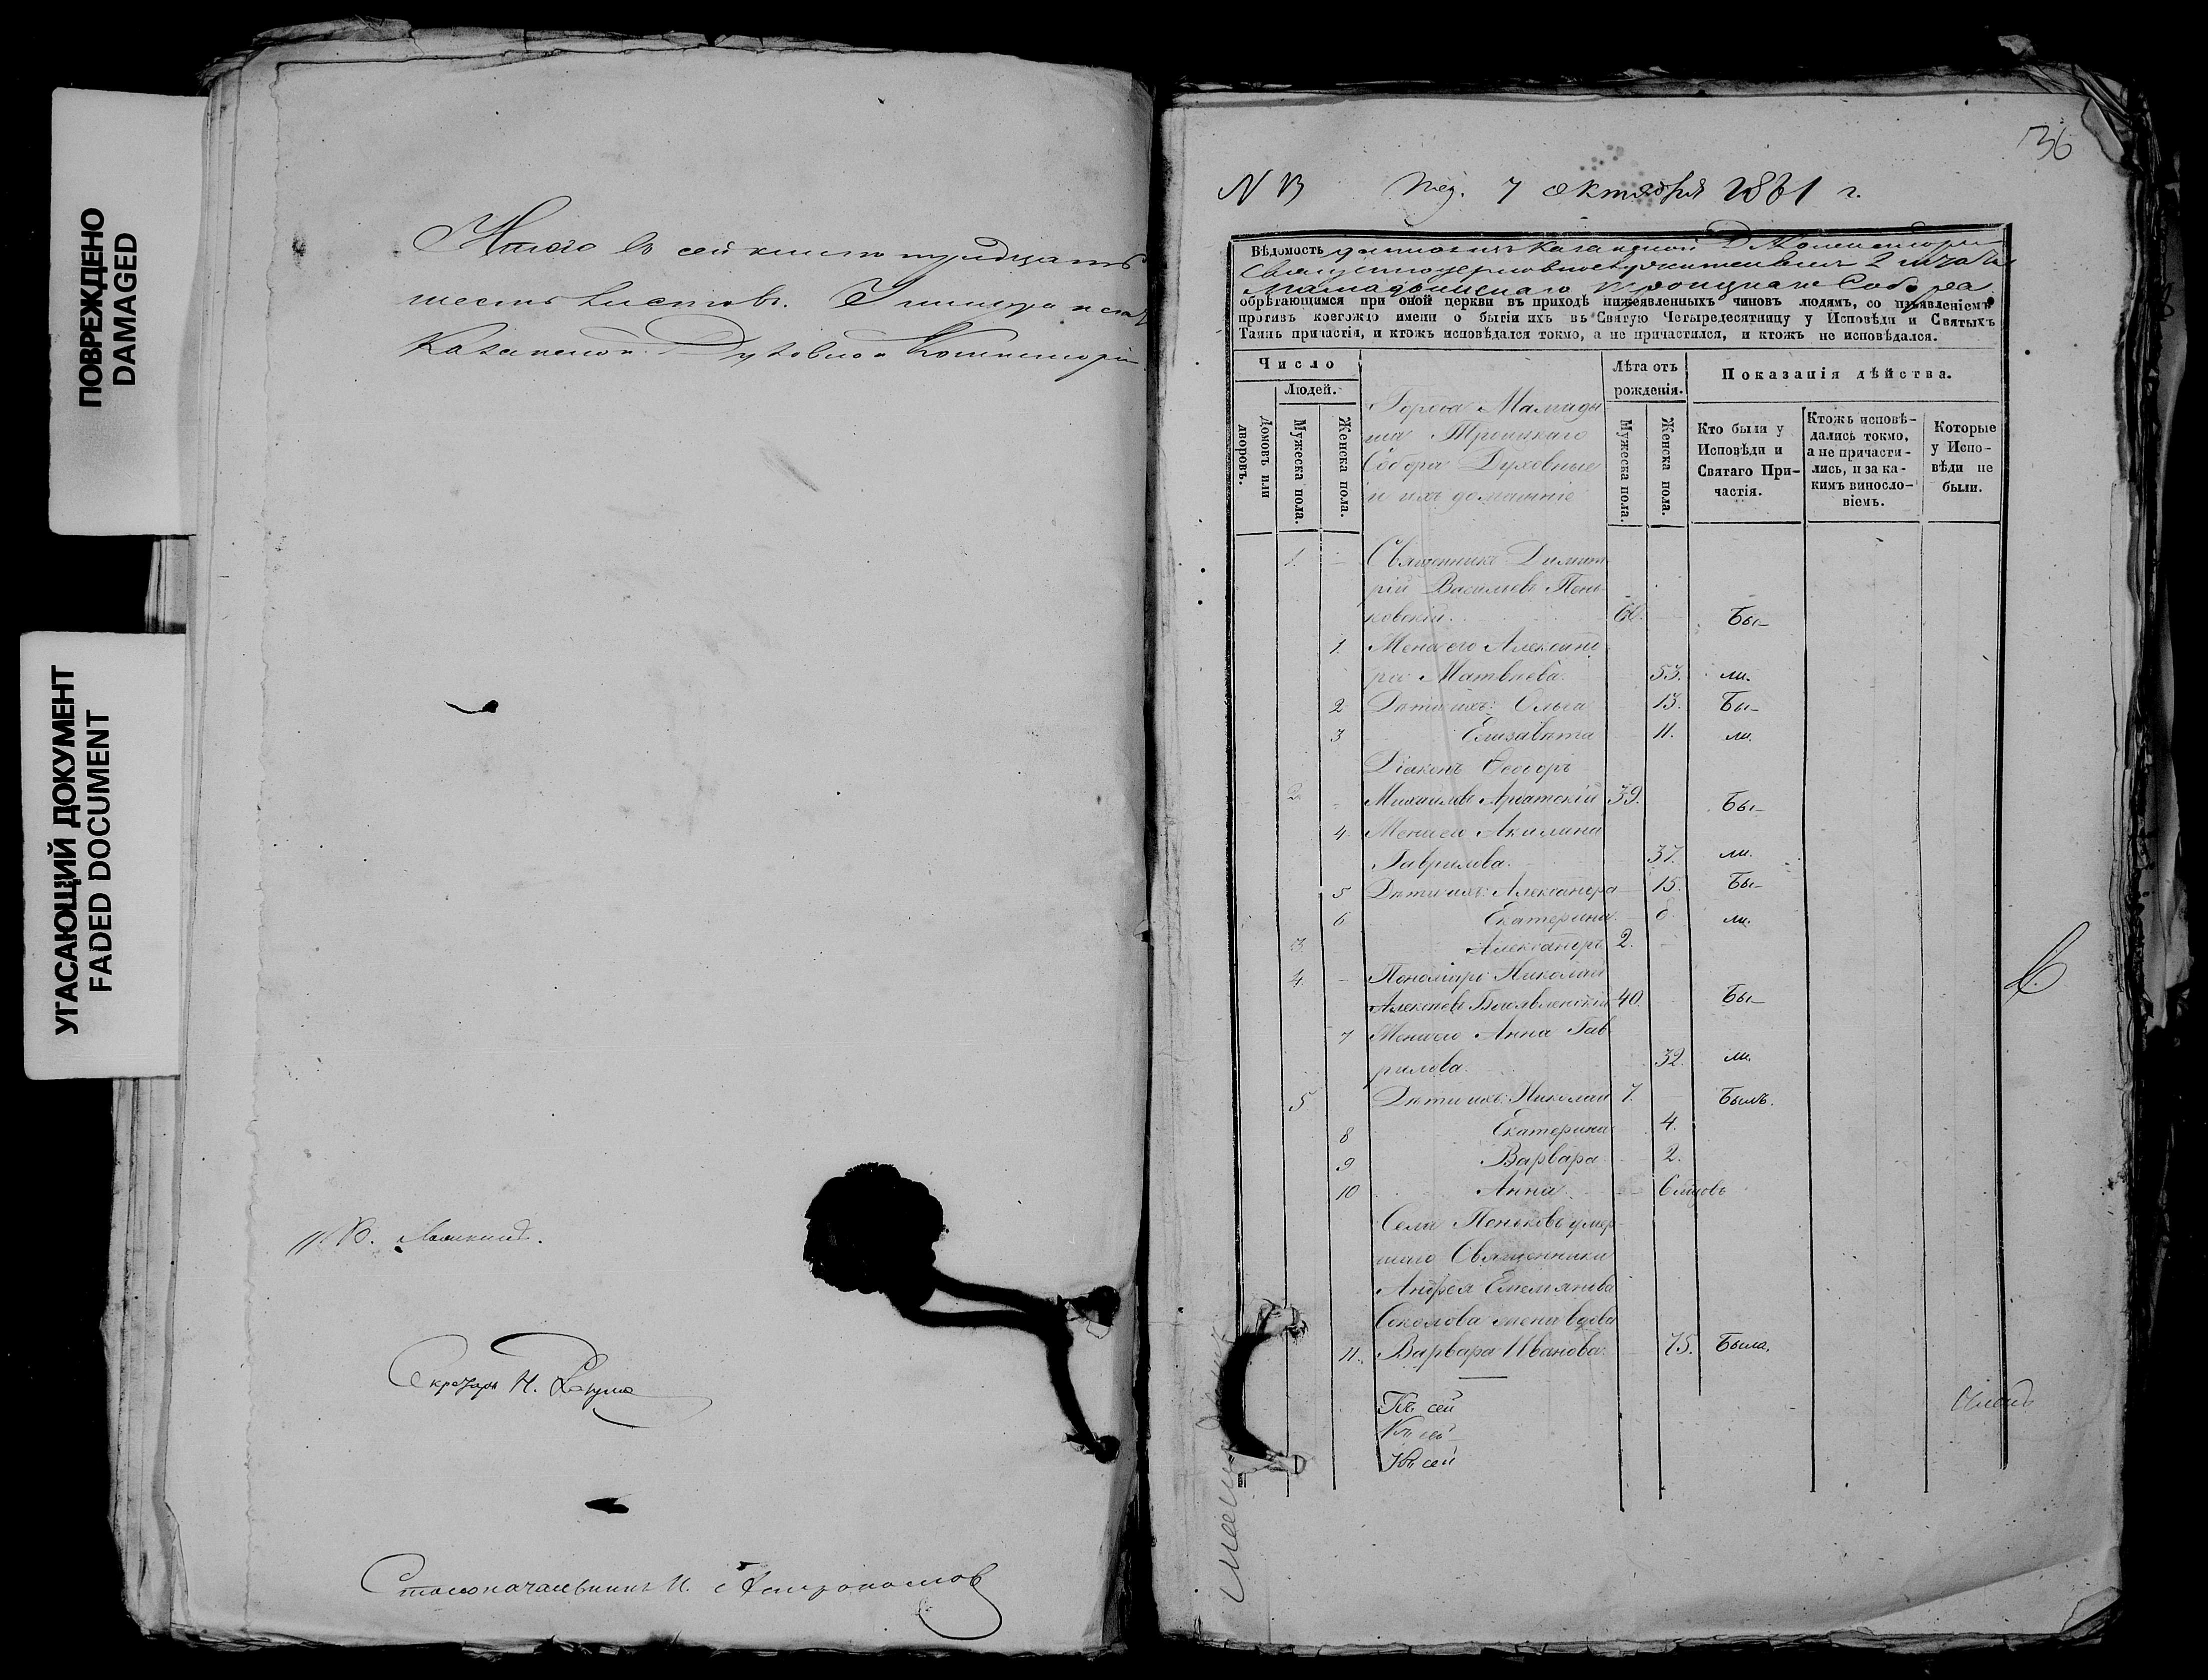 ПОВРЕЖДЕНО
DAMAGED
УГАСАЮЩИЙ ДОКУМЕНТ
FADED DOCUMENT
Итого въ сей книге тридцать
шесть листовъ.
Казанской Духовной Консисторіи
Секретарь И.
Столоначальникъ И.
36
7 октября 1861 г.
Вѣдомость Казанской Д Консисторіи
Мамадышскаго Троицкаго Собора
обрѣтающимся при оной церкви въ приходѣ нижеявленныхъ чиновъ людямъ, со изъявленіемъ
противъ коегождо имени о бытіи ихъ въ Святую Четыредесятницу у Исповѣди и Святыхъ
Таинъ причастія, и ктожъ исповѣдался токмо, а не причастился, и ктожъ не исповѣдался.
Число
Людей.
Домовъ или дворовъ.
Мужеска пола.
Женска пола.
Города Мамады
ша Троицкаго
Собора Духовные
и ихъ домашніе
Лѣта отъ рожденія.
Мужеска пола.
Женска пола.
Показанія дѣйства.
Кто были у
Исповѣди и
Святаго При-
частія.
Ктожъ исповѣ-
дались токмо,
а не причасти-
лись, и за ка-
кимъ винослo-
віемъ.
Которые
у Испо-
вѣди не
были.
1. – Священникъ Димит
рій Васильевъ Пень
ковскій. 60. Бы–
1. Жена его Александ
ра Матвѣева. 53. ли.
2 Дѣти ихъ: Ольга 13. Бы–
3 Елизавѣта 11. ли.
Діаконъ Ѳеодоръ
2. – Михаиловъ 39. Бы–
4. Жена его Акилина
Гаврилова. 37. ли.
5 Дѣти ихъ: Александра 15. Бы–
6 Екатерина. 8. ли.
3. Александръ 2.
4. – Пономарь Николай
Алексѣевъ Богоявленскій 40. Бы–
7 Жена его Анна Гав
рилова. 32. ли.
5 Дѣти ихъ: Николай 7. Былъ.
8 Екатерина 4.
9 Варвара 2.
10 Анна 6 мѣсяцовъ
Села Пеньковъ умер
шаго Священника
Андрея Емельянова
Соколова жена вдова
11. Варвара Иванова. 75. Была.
Къ сей
Къ сей
Къ сей